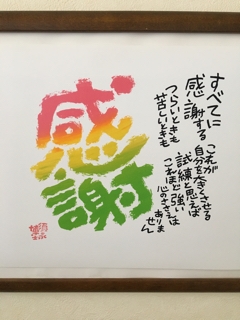 感謝
すべてに
感謝する
つらいときも
苦しいときも
これが
自分を大きくさせる
試練と思えば
これほど強い
心のささえは
ありま
せん